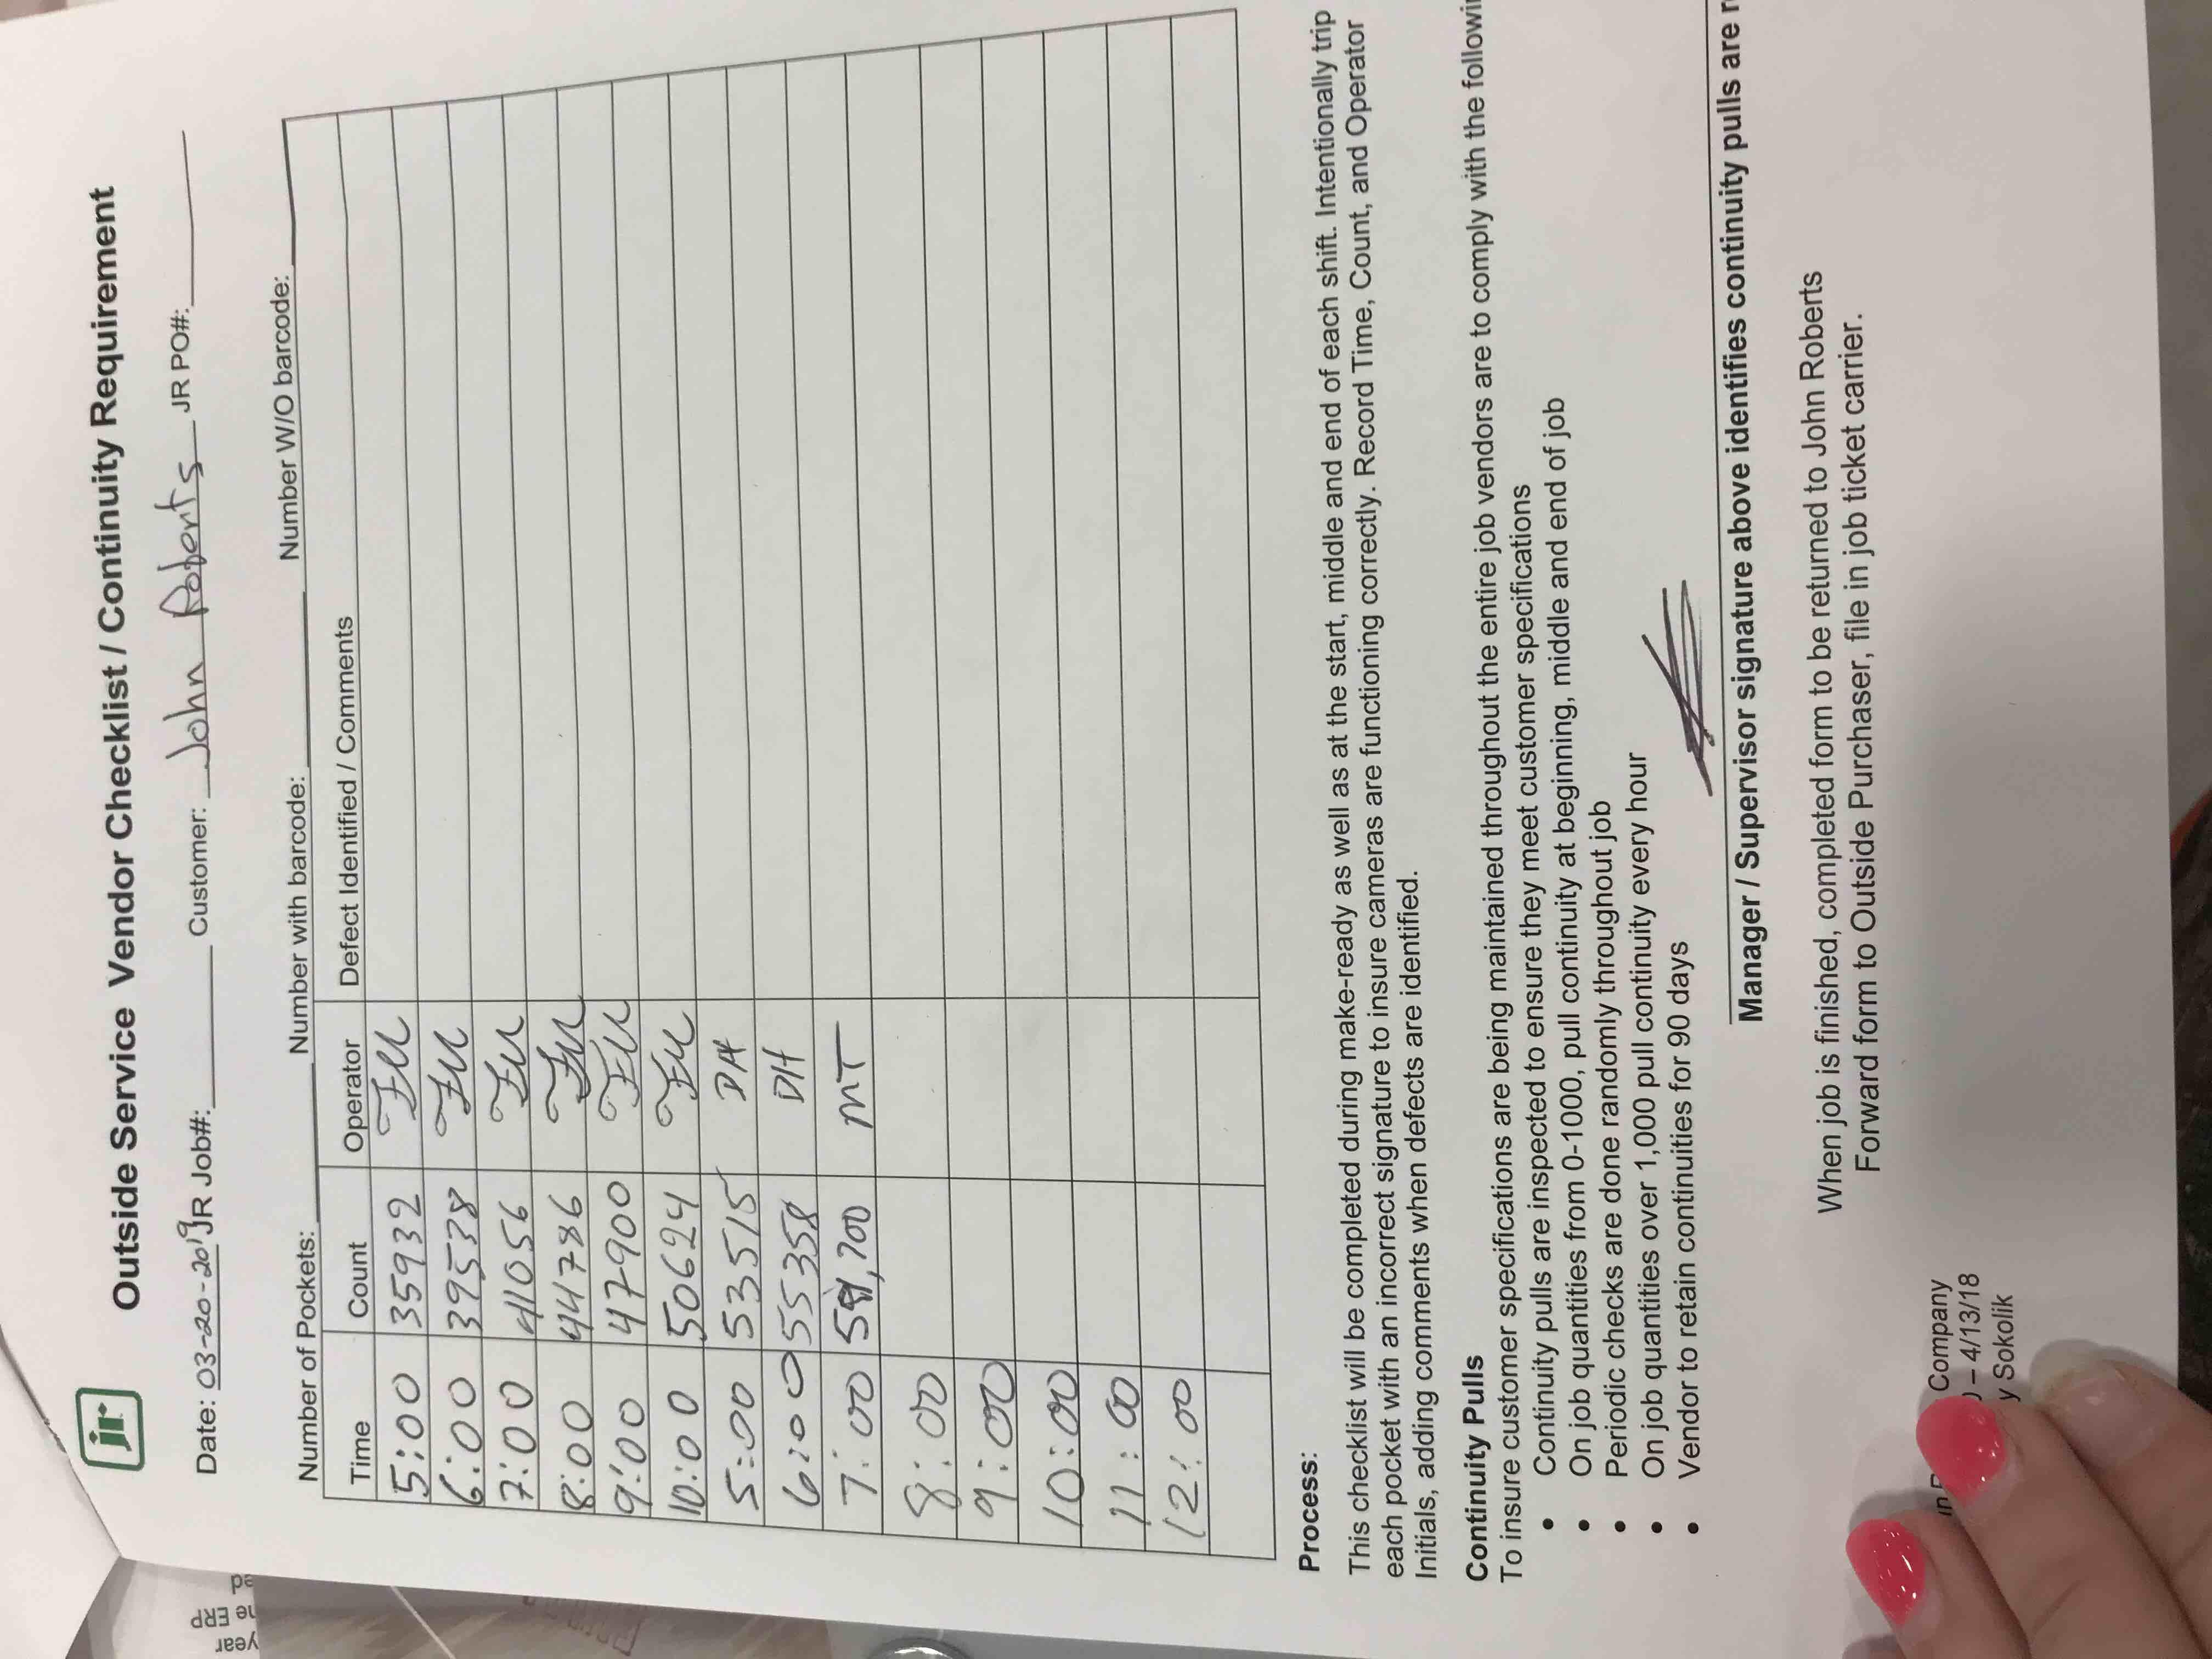 jr
Outside Service Vendor Checklist / Continuity Requirement
Date: 03-20-2019 JR Job#: Customer: John Roberts JR PO#:
Number of Pockets: Number with barcode: Number W/O barcode:
Time Count Operator Defect Identified / Comments
5:00 359932
6:00 399538
7:00 41056
8:00 447786
9:00 477900
10:00 506624
5:00 533515 DH
6:00 555358 DH
7:00 MT
8:00
9:00
10:00
11:00
12:00
Process:
This checklist will be completed during make-ready as well as at the start, middle and end of each shift. Intentionally trip
each pocket with an incorrect signature to insure cameras are functioning correctly. Record Time, Count, and Operator
Initials, adding comments when defects are identified.
Continuity Pulls
To insure customer specifications are being maintained throughout the entire job vendors are to comply with the followin
• Continuity pulls are inspected to ensure they meet customer specifications
• On job quantities from 0-1000, pull continuity at beginning, middle and end of job
• Periodic checks are done randomly throughout job
• On job quantities over 1,000 pull continuity every hour
• Vendor to retain continuities for 90 days
Manager / Supervisor signature above identifies continuity pulls are
When job is finished, completed form to be returned to John Roberts
Forward form to Outside Purchaser, file in job ticket carrier.
Company
– 4/13/18
y Sokolik
year
ne ERP
ed